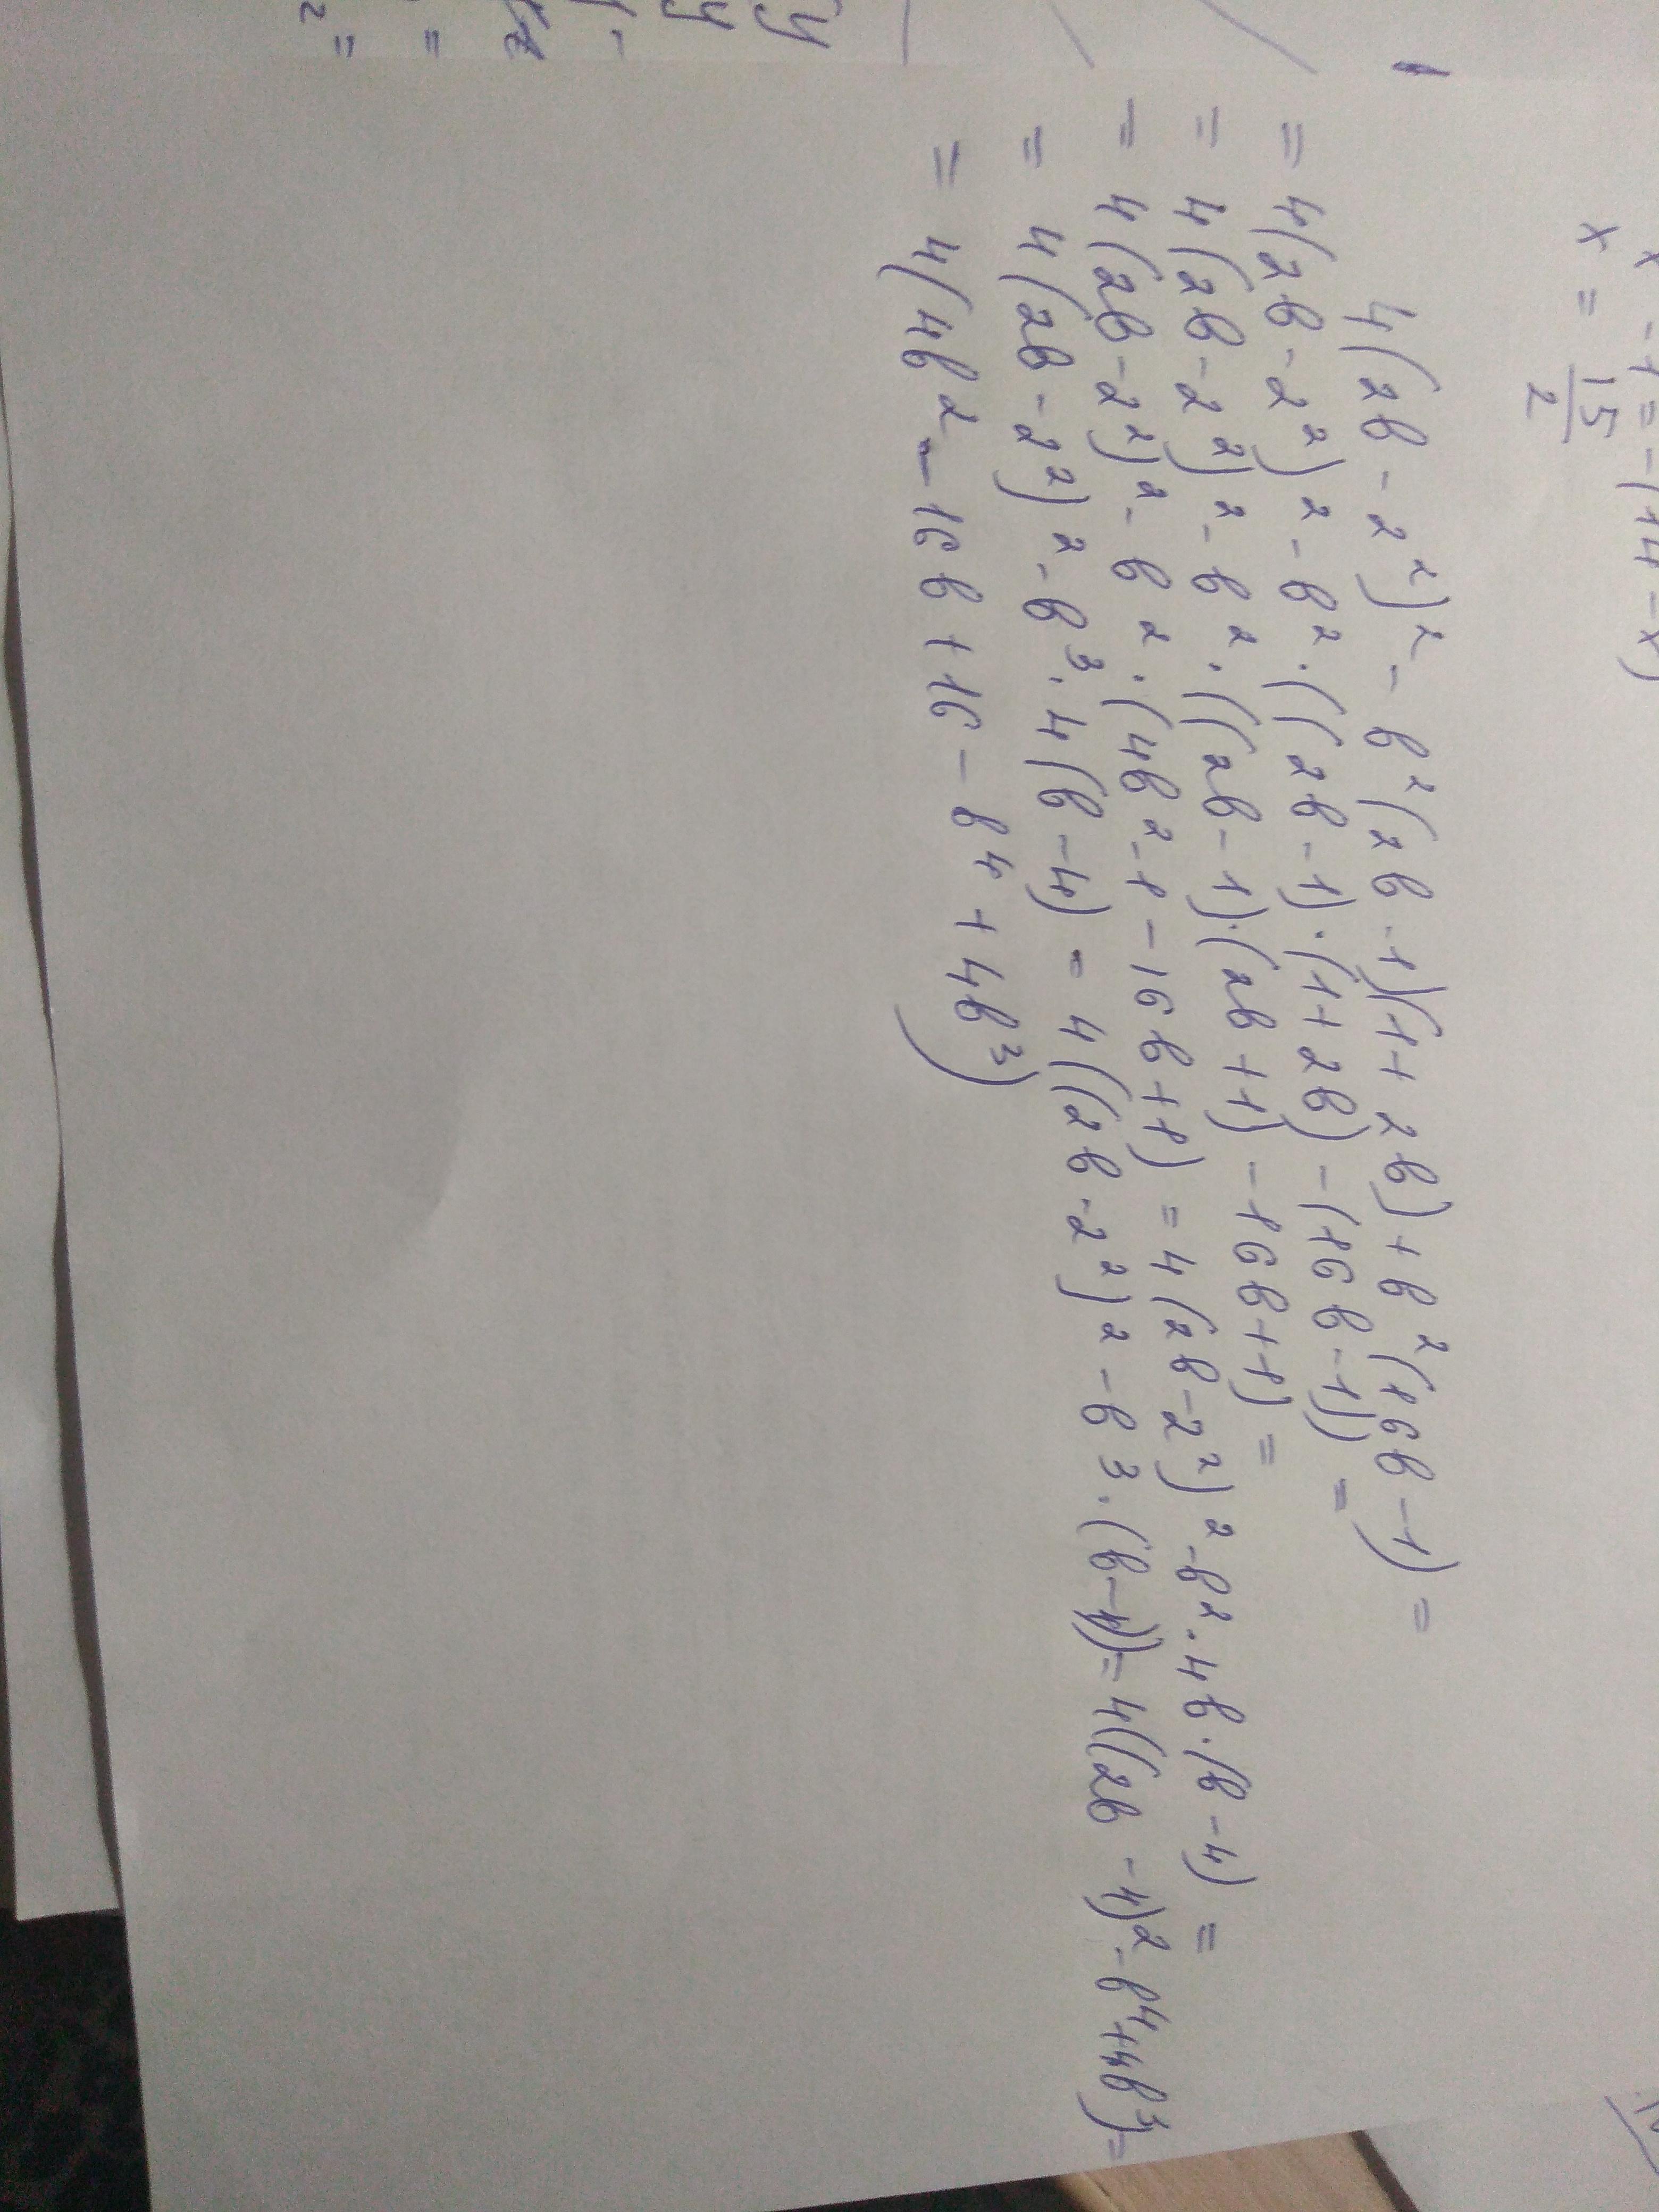 x - 1 = -(14 - x)
x = 15/2
4(2b - 2²)² - b²(2b - 1)(1 + 2b) + b²(16b - 1) =
= 4(2b - 2²)² - b² · ((2b - 1) · (1 + 2b) - (16b - 1)) =
= 4(2b - 2²)² - b² · ((2b - 1) · (2b + 1) - 16b + 1) =
= 4(2b - 2²)² - b² · (4b² - 1 - 16b + 1) = 4(2b - 2²)² - b² · 4b · (b - 4) =
= 4(2b - 2²)² - b³ · 4(b - 4) = 4((2b - 2²)² - b³ · (b - 4)) = 4((2b - 4)² - b⁴ + 4b³) =
= 4(4b² - 16b + 16 - b⁴ + 4b³)